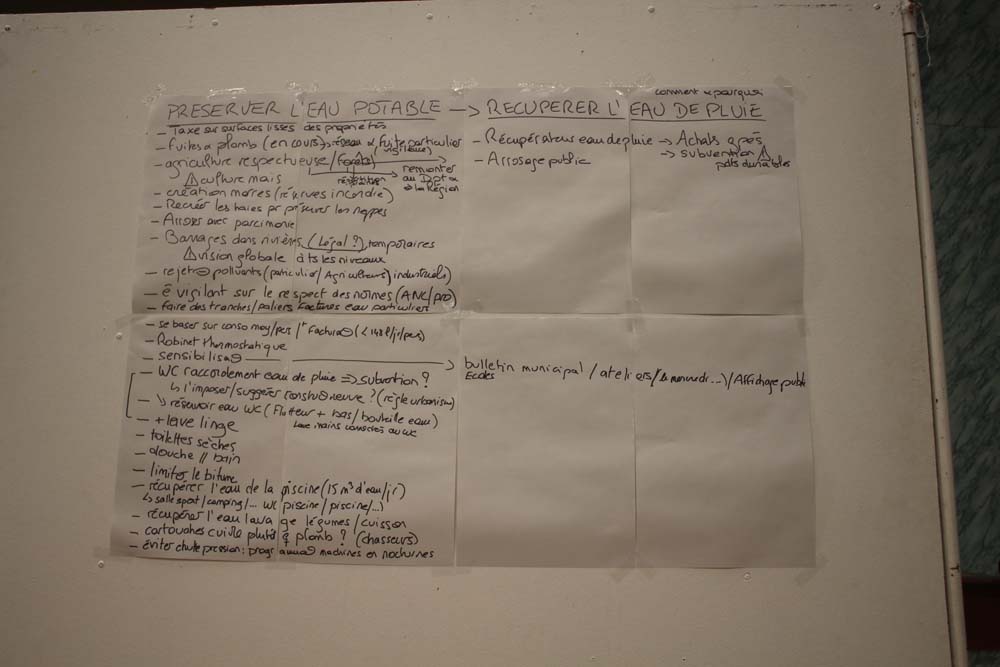 comment & pourquoi
PRESERVER L'EAU POTABLE → RECUPERER L'EAU DE PLUIE
- Taxe sur surfaces lisses des propriétés
- Fuites & plomb (en cours) → réseau & fuite particulier
(vigilence)
- agriculture respectueuse / forêts
⚠ culture mais
→ remonter au Dpt &
→ la Région
- création marres (réserves incendie)
- Recréer les haies pr préserver les nappes
- Arroser avec parcimonie
- Barrages dans rivières (Légal ?) temporaires
⚠ vision globale à ts les niveaux
- rejet polluants (particulier / Agriculteurs / industriels)
- ê vigilant sur le respect des normes (ANC/pro)
- faire des tranches/paliers factures eau particuliers
- Récupérateur eau de pluie → Achats
→ subvention ⚠
pdts durables
- Arrosage public
- se baser sur conso moy/pers (< 148 l/jr/pers)
- Robinet thermostatique
- sensibilisaθ → bulletin municipal / ateliers / le mercredi ...) / Affichage public
Ecoles
- WC raccordement eau de pluie => subvention ?
↳ l'imposer / suggérer construθ neuve ? (règle urbanism)
- ↘ réservoir eau WC (Flotteur + bas / bouteille eau)
Lave mains connectés au WC
- + lave linge
- toilettes sèches
- douche // bain
- limiter le bitume
- récupérer l'eau de la piscine (15 m³ d'eau/jr)
↳ salle sport / camping / ... WC piscine / piscine / ...)
- récupérer l'eau lavage légumes / cuisson
- cartouches cuivre plutôt q plomb ? (chasseurs)
- éviter chute pression : programmaθ machines en nocturnes